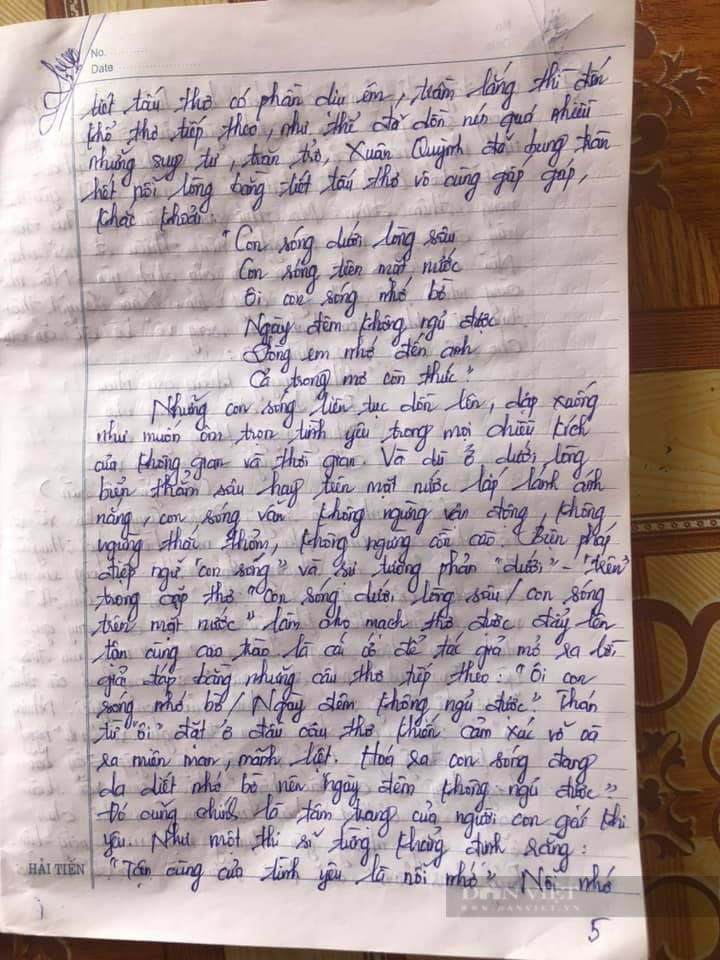 No.
Date
tiết tấu thơ có phần dịu êm, trầm lắng thì đến
khổ thơ tiếp theo, như thể đã dồn nén quá nhiều
những suy tư, trăn trở, Xuân Quỳnh đã bung tràn
hết nỗi lòng bằng tiết tấu thơ vô cùng gấp gáp,
khắc khoải:
"Con sóng dưới lòng sâu
Con sóng trên mặt nước
Ôi con sóng nhớ bờ
Ngày đêm không ngủ được
Lòng em nhớ đến anh
Cả trong mơ còn thức"
Những con sóng liên tục dồn lên, dập xuống
như muốn ôm trọn tình yêu trong mọi chiều kích
của không gian và thời gian. Và dù ở dưới lòng
biển thẳm sâu hay trên mặt nước lấp lánh ánh
nắng, con sóng vẫn không ngừng vận động, không
ngừng thổn thức, không ngừng cồn cào. Biện pháp
điệp ngữ "con sóng" và sự tương phản "dưới" - "trên"
trong cặp thơ "Con sóng dưới lòng sâu / Con sóng
trên mặt nước" làm cho mạch thơ được đẩy lên
tận cùng cao trào là cái cớ để tác giả mở ra lời
giải đáp bằng những câu thơ tiếp theo: "Ôi con
sóng nhớ bờ / Ngày đêm không ngủ được". Thán
từ "ôi" đặt ở đầu câu thơ khiến cảm xúc vỡ oà
ra miên man, mãnh liệt. Hoá ra con sóng đang
da diết nhớ bờ nên "ngày đêm không ngủ được".
Đó cũng chính là tâm trạng của người con gái khi
yêu. Như một thi sĩ từng khẳng định rằng:
"Tận cùng của tình yêu là nỗi nhớ". Nỗi nhớ
HẢI TIẾN
DÂN VIỆT
WWW.DANVIET.VN
5